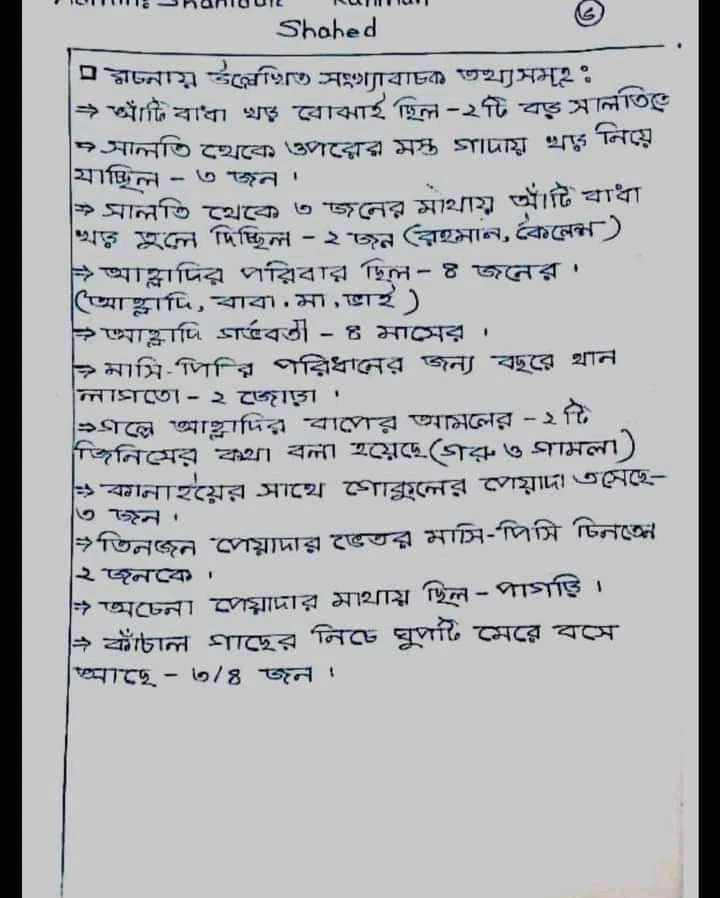 Shahed
৬
□ রচনায় উল্লেখিত সংখ্যাবাচক তথ্যসমূহ :
⇒ আঁটি বাধা খড় বোঝাই ছিল - ২টি বড় সালতিতে
⇒ সালতি থেকে ওপরের মস্ত গাদায় খড় নিয়ে
যাচ্ছিল - ৩ জন ।
⇒ সালতি থেকে ৩ জনের মাথায় আঁটি বাধা
খড় তুলে দিচ্ছিল - ২ জন (রহমান, কৈলেশ)
⇒ আহ্লাদির পরিবার ছিল - ৪ জনের ।
(আহ্লাদি, বাবা, মা, ভাই)
⇒ আহ্লাদি গর্ভবতী - ৪ মাসের ।
⇒ মাসি-পিসির পরিধানের জন্য বছরে থান
লাগতো - ২ জোড়া ।
⇒ গল্পে আহ্লাদির বাপের আমলের - ২টি
জিনিসের কথা বলা হয়েছে (গরু ও গামলা)
⇒ কানাইয়ের সাথে গোকুলের পেয়াদা এসেছে-
৩ জন ।
⇒ তিনজন পেয়াদার ভেতর মাসি-পিসি চিনতেন
২ জনকে ।
⇒ অচেনা পেয়াদার মাথায় ছিল - পাগড়ি ।
⇒ কাঁঠাল গাছের নিচে ঘুপটি মেরে বসে
আছে - ৩/৪ জন ।